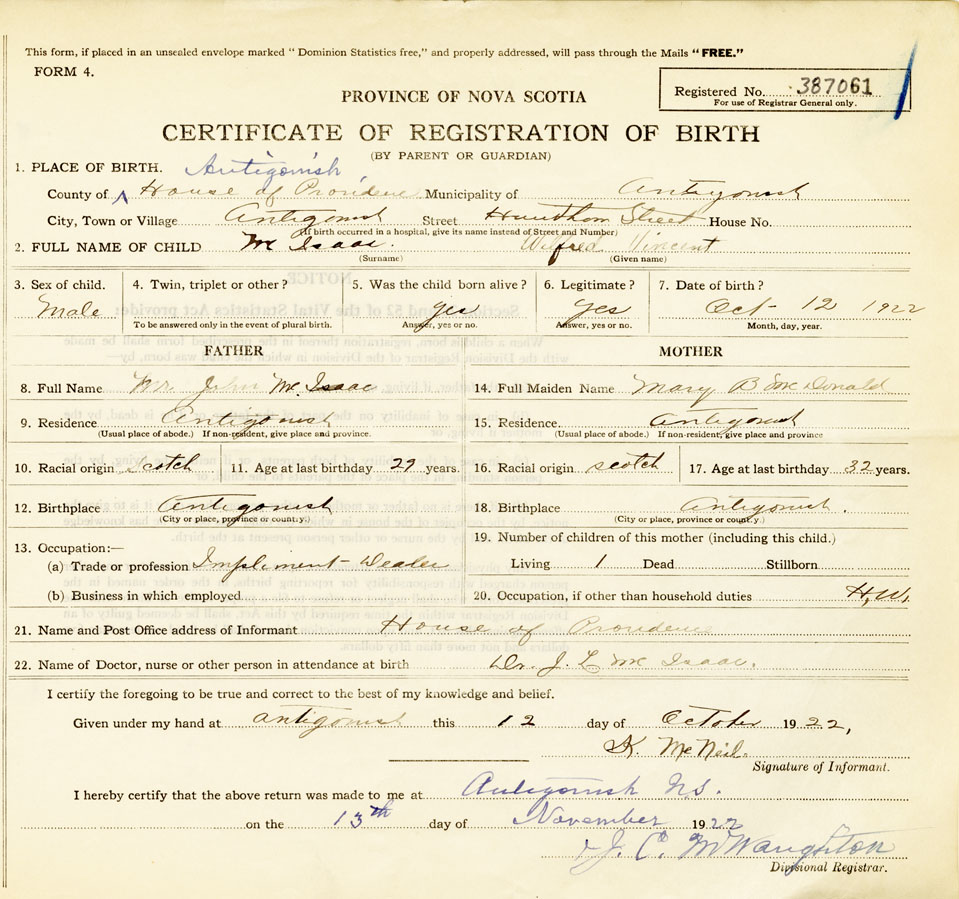 This form, if placed in an unsealed envelope marked " Dominion Statistics free," and properly addressed, will pass through the Mails "FREE."
FORM 4.
Registered No. 387061
For use of Registrar General only.
PROVINCE OF NOVA SCOTIA
CERTIFICATE OF REGISTRATION OF BIRTH
(BY PARENT OR GUARDIAN)
1. PLACE OF BIRTH. Antigonish
County of House of Providence Municipality of Antigonish
City, Town or Village Antigonish Street Street House No.
(If birth occurred in a hospital, give its name instead of Street and Number)
2. FULL NAME OF CHILD Mc Isaac. Wilfred Vincent
(Surname) (Given name)
3. Sex of child. 4. Twin, triplet or other? 5. Was the child born alive? 6. Legitimate? 7. Date of birth?
Male yes yes Oct- 12 1922
To be answered only in the event of plural birth. Answer, yes or no. Answer, yes or no. Month, day, year.
FATHER MOTHER
8. Full Name John Mc Isaac 14. Full Maiden Name Mary B Mc Donald
9. Residence Antigonish 15. Residence. Antigonish
(Usual place of abode.) If non-resident, give place and province. (Usual place of abode.) If non-resident, give place and province
10. Racial origin Scotch 11. Age at last birthday 29 years. 16. Racial origin scotch 17. Age at last birthday 32 years.
12. Birthplace Antigonish 18. Birthplace Antigonish.
(City or place, province or country.) (City or place, province or country.)
13. Occupation:— 19. Number of children of this mother (including this child.)
(a) Trade or profession Implement-Dealer Living 1 Dead Stillborn
(b) Business in which employed 20. Occupation, if other than household duties H.W.
21. Name and Post Office address of Informant House of Providence
22. Name of Doctor, nurse or other person in attendance at birth Dr. J. Mc Isaac.
I certify the foregoing to be true and correct to the best of my knowledge and belief.
Given under my hand at Antigonish this 12 day of October 1922,
McNeil.
Signature of Informant.
I hereby certify that the above return was made to me at Antigonish NS.
on the 13th day of November 1922
J. C.
Divisional Registrar.